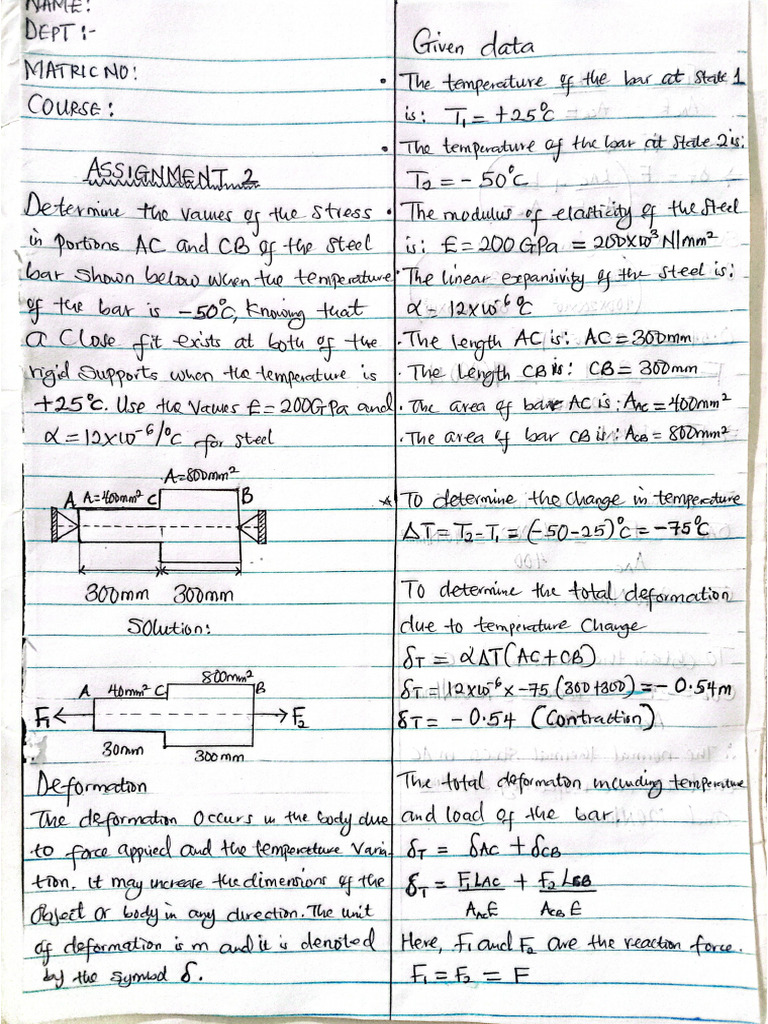 NAME:
DEPT:-
MATRIC NO:
COURSE:
ASSIGNMENT 2
Determine the values of the stress
in portions AC and CB of the steel
bar shown below when the temperature
of the bar is -50°C, Knowing that
a Close fit exists at both of the
rigid supports when the temperature is
+25°C. Use the Values E=200GPa and
α=12x10⁻⁶/°C for steel
A=800mm²
A A=400mm² C B
300mm 300mm
Solution:
800mm²
A 40mm² C B
F₁ F₂
30mm 300mm
Deformation
The deformation occurs in the body due
to force applied and the temperature Varia-
tion. It may increase the dimensions of the
object or body in any direction. The unit
of deformation is m and it is denoted
by the symbol δ.
Given data
• The temperature of the bar at state 1
is: T₁ = +25°C
• The temperature of the bar at state 2 is:
T₂ = -50°C
• The modulus of elasticity of the steel
is: E=200GPa = 200x10³ N/mm²
• The linear expansivity of the steel is:
α=12x10⁻⁶ °C
• The length AC is: AC=300mm
• The Length CB is: CB = 300mm
• The area of bar AC is: A_AC =400mm²
• The area of bar CB is: A_CB = 800mm²
* To determine the change in temperature
ΔT=T₂-T₁ = (-50-25)°C=-75°C
To determine the total deformation
due to temperature Change
δ_T = αΔT(AC+CB)
δ_T = 12x10⁻⁶ x -75 (300+300) = -0.54m
δ_T= -0.54 (Contraction)
The total deformation including temperature
and load of the bar
δ_T = δ_AC + δ_CB
δ_T = F₁L_AC/A_AC E + F₂L_CB/A_CB E
Here, F₁ and F₂ are the reaction force.
F₁ = F₂ = F